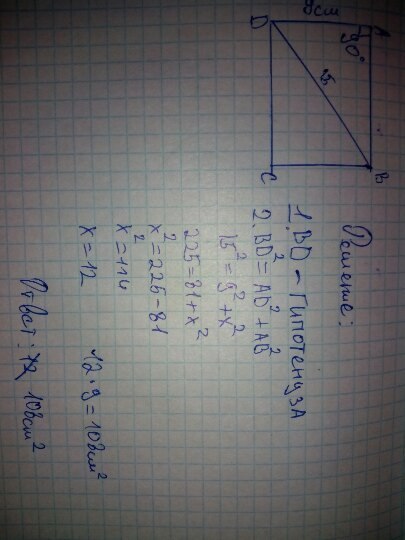 D 9см A
90°
15
C B
Решение:
1. BD - Гипотенуза
2. BD² = AD² + AB²
15² = 9² + x²
225 = 81 + x²
x² = 225 - 81
x² = 144
x = 12 12·9 = 108см²
Ответ: 108см²